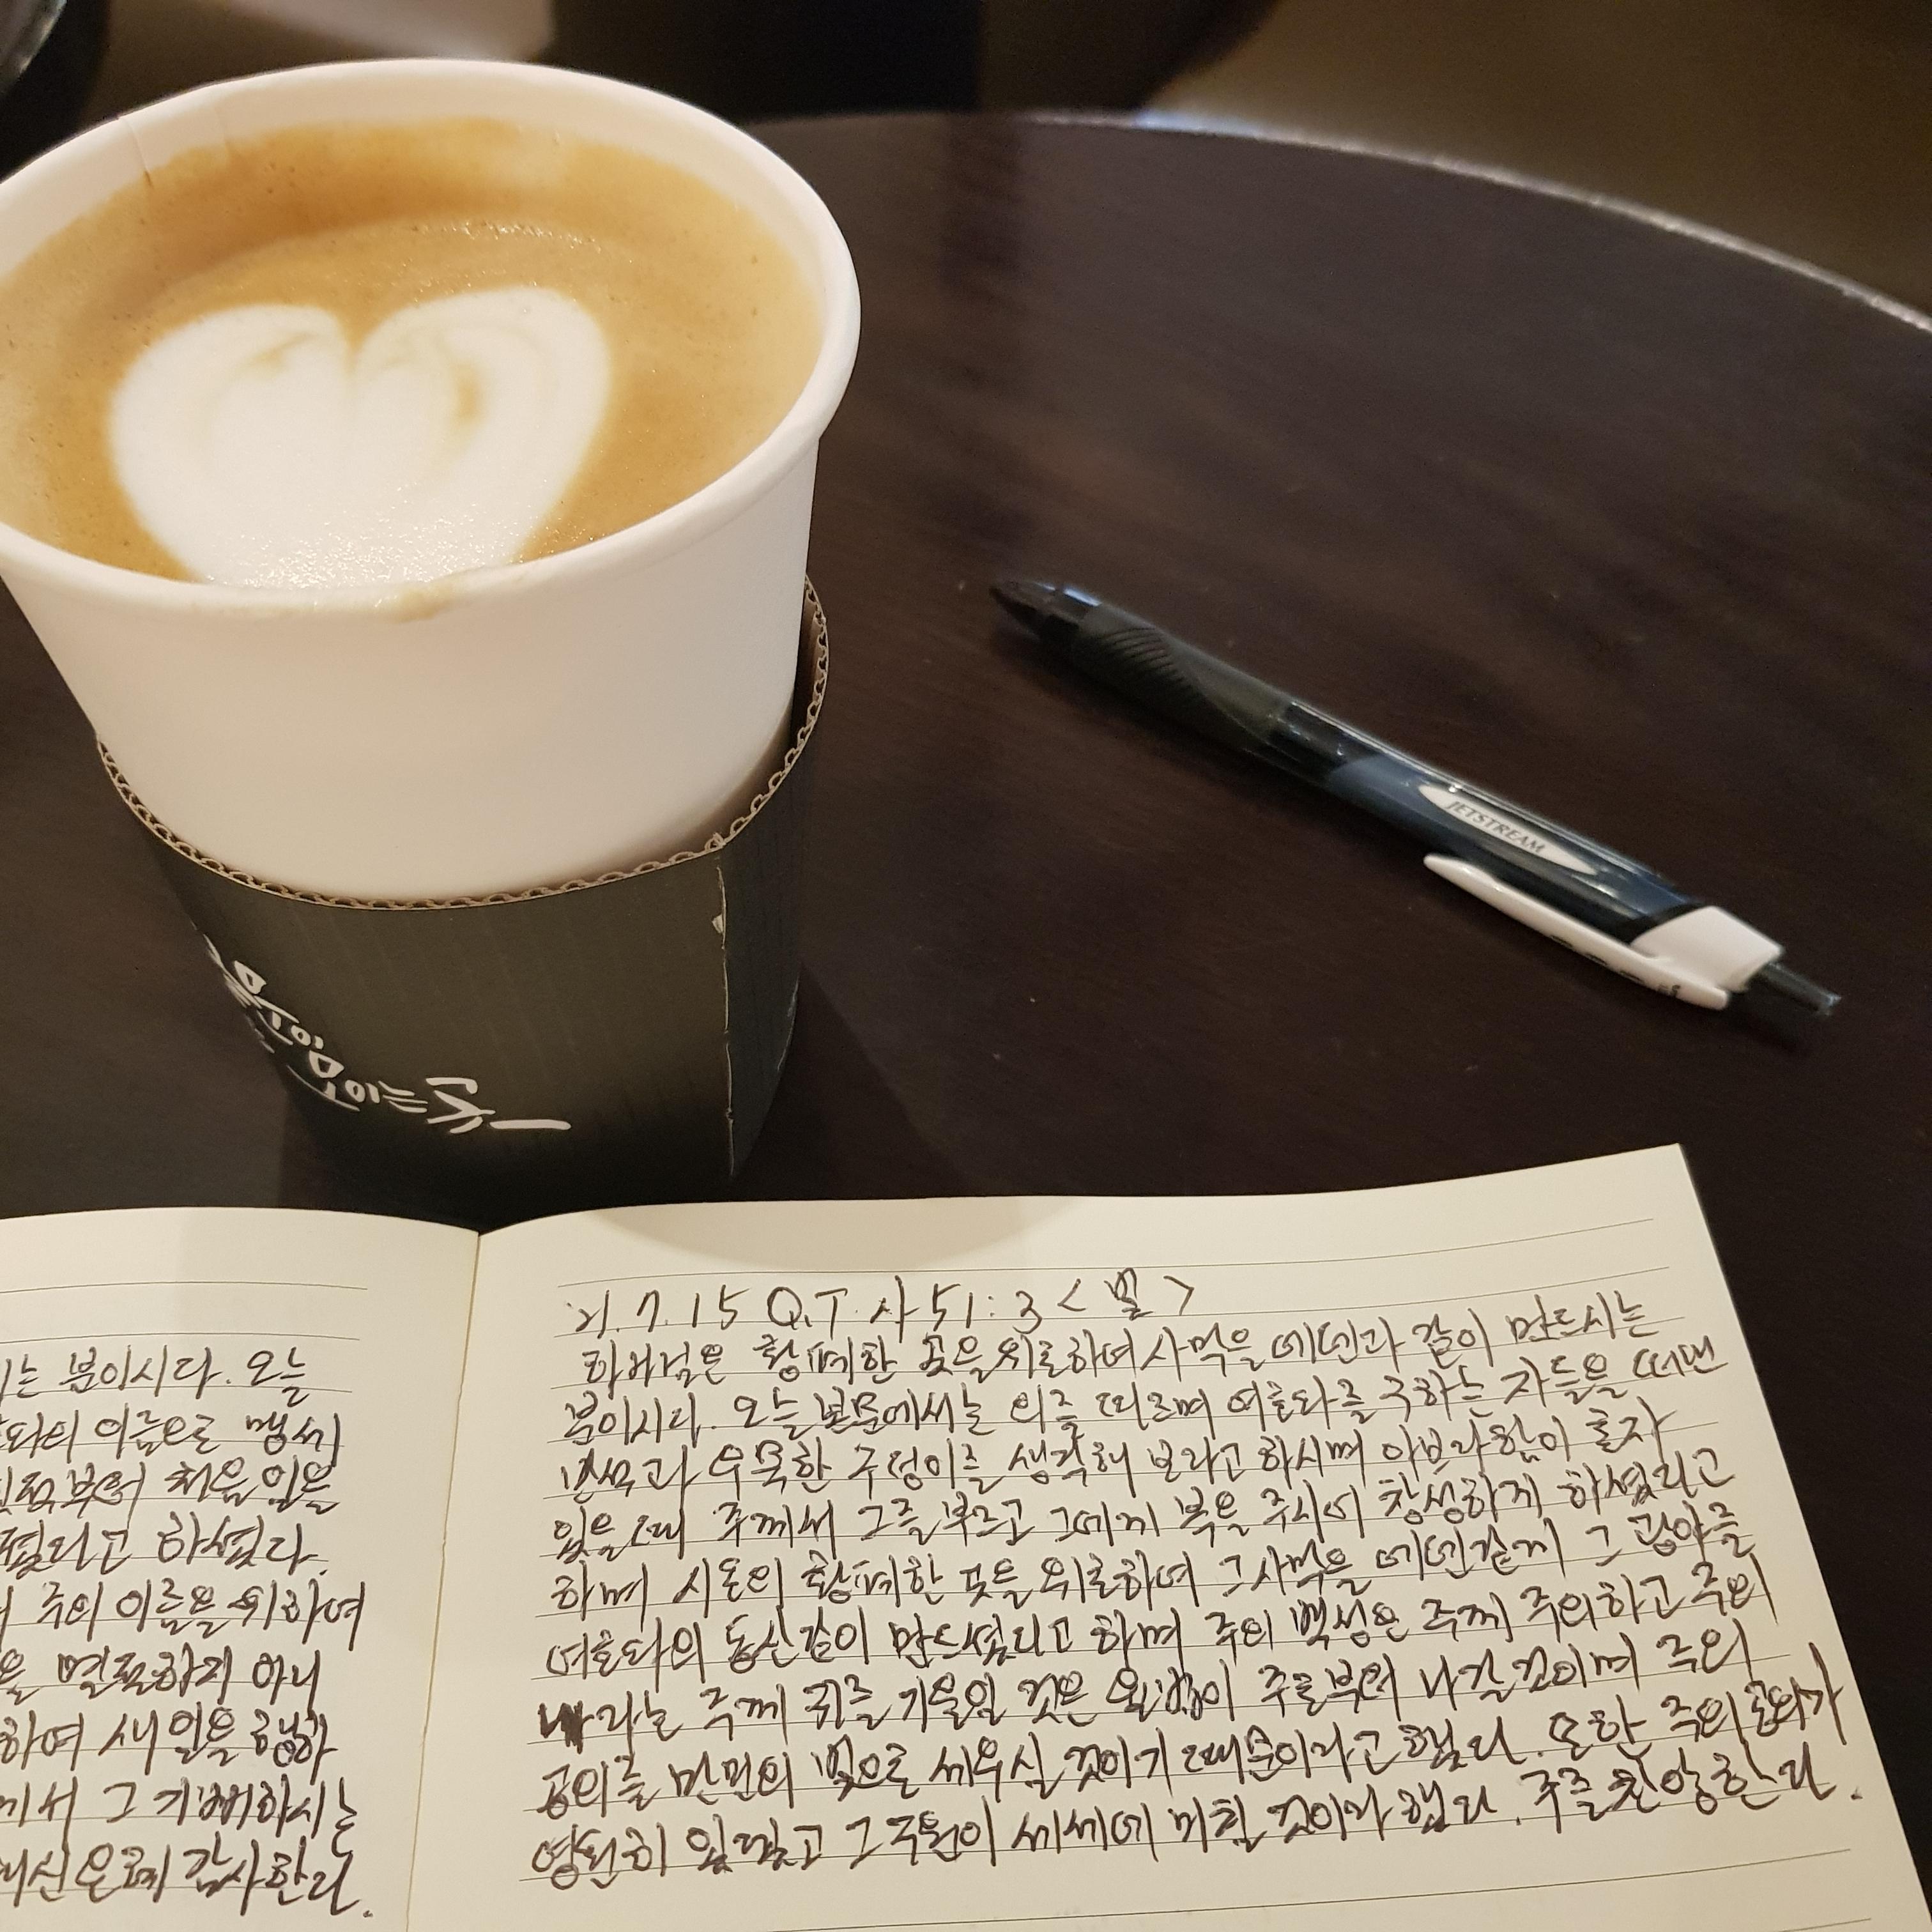 모이는 곳
JETSTREAM
는 분이시다. 오늘
와의 이름으로 맹세
부터 처음 일을
고 하셨다.
주의 이름을 위하여
을 멸절하지 아니
하여 새 일을 행하
께서 그 기뻐하시는
신 은혜 감사한다.
21. 7. 15 Q.T 사 51:3 <월>
하나님은 황폐한 곳을 위로하여 사막을 에덴과 같이 만드시는
분이시다. 오늘 본문에서는 의를 따르며 여호와를 구하는 자들을 떼낸
반석과 우묵한 구덩이를 생각해 보라고 하시며 아브라함이 혼자
있을 때 주께서 그를 부르고 그에게 복을 주시어 창성하게 하셨다고
하며 시온의 황폐한 곳들을 위로하여 그 사막을 에덴같게 그 광야를
여호와의 동산같이 만드셨다고 하며 주의 백성은 주께 주의하고 주의
나라는 주께 귀를 기울일 것은 율법이 주로부터 나갈 것이며 주의
공의를 만민의 빛으로 세우실 것이기 때문이라고 했다. 또한 주의 공의가
영원히 있겠고 그 구원이 세세에 미칠 것이라 했다. 주를 찬양한다.